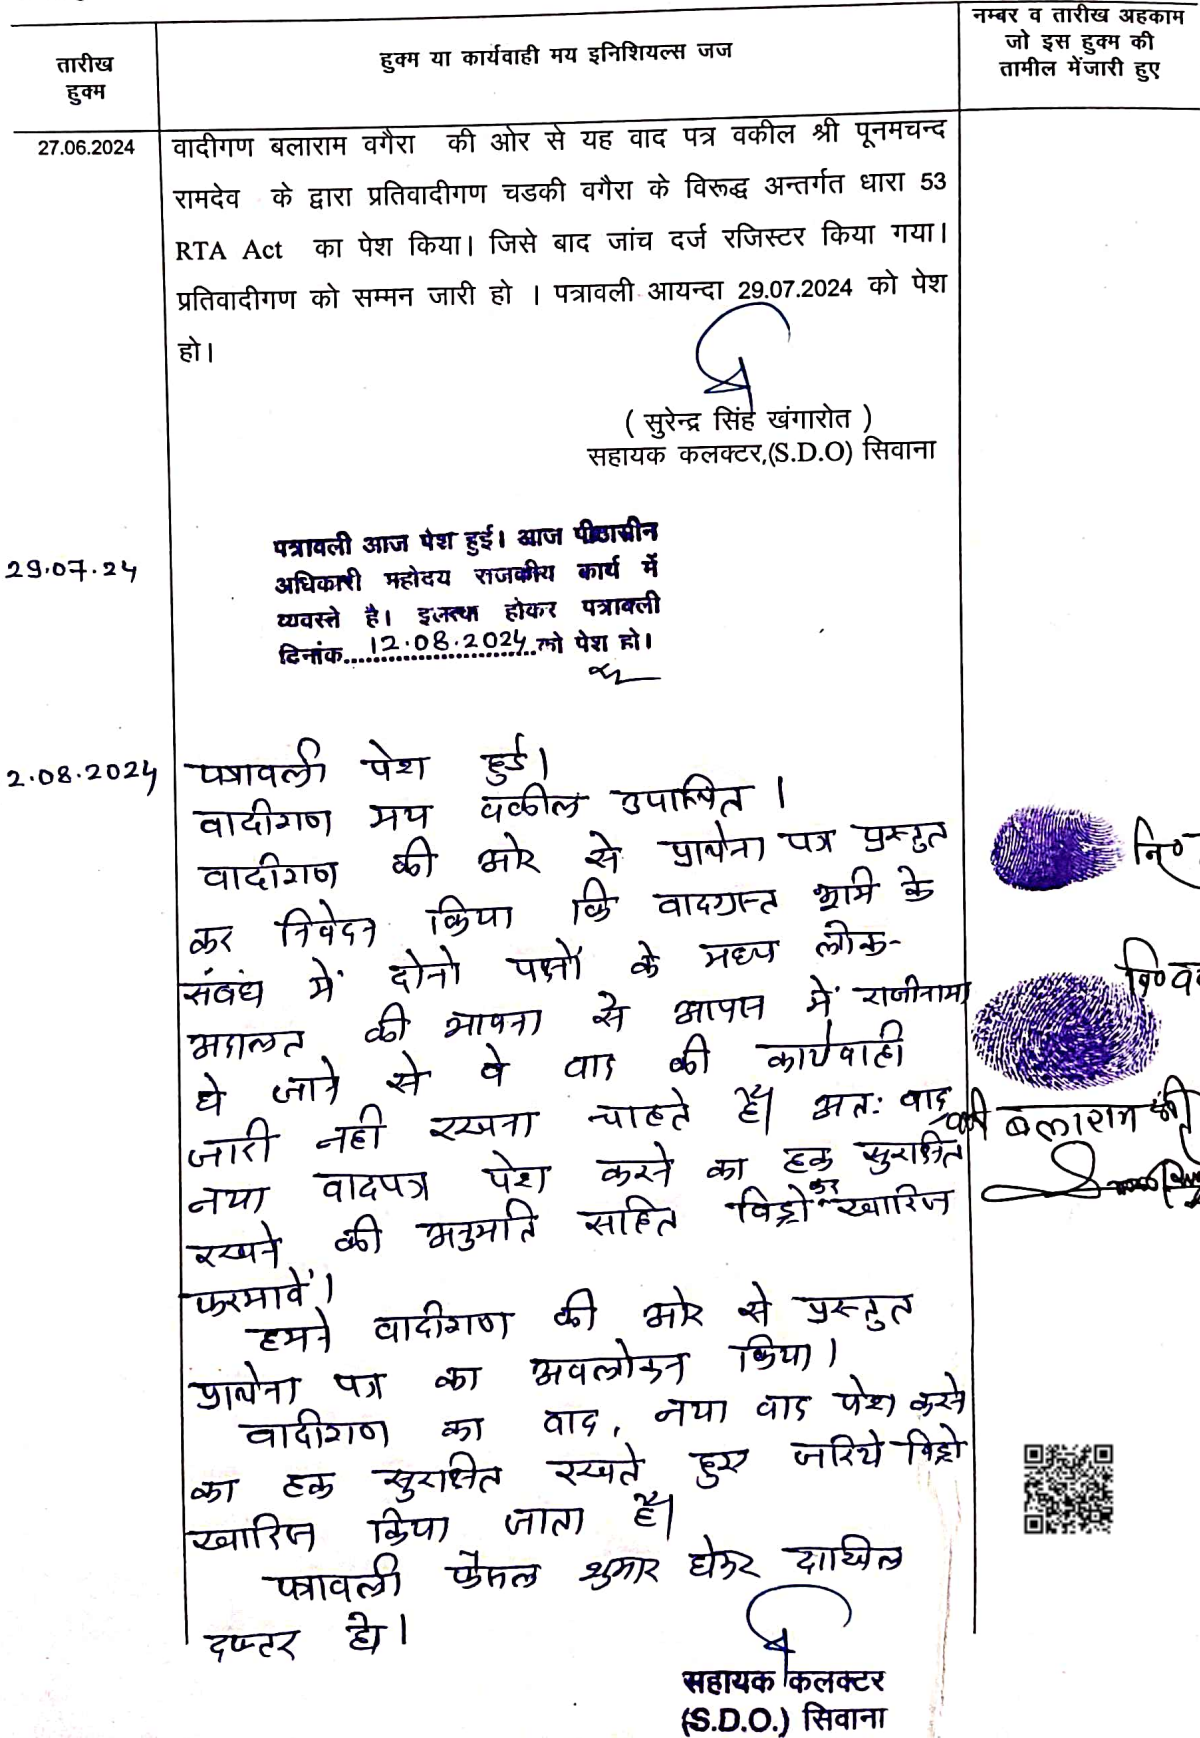 तारीख
हुक्म
हुक्म या कार्यवाही मय इनिशियल्स जज
नम्बर व तारीख अहकाम
जो इस हुक्म की
तामील मेंजारी हुए
27.06.2024
वादीगण बलाराम वगैरा की ओर से यह वाद पत्र वकील श्री पूनमचन्द
रामदेव के द्वारा प्रतिवादीगण चडकी वगैरा के विरूद्ध अन्तर्गत धारा 53
RTA Act का पेश किया। जिसे बाद जांच दर्ज रजिस्टर किया गया।
प्रतिवादीगण को सम्मन जारी हो । पत्रावली आयन्दा 29.07.2024 को पेश
हो।
( सुरेन्द्र सिंह खंगारोत )
सहायक कलक्टर,(S.D.O) सिवाना
29.07.24
पत्रावली आज पेश हुई। आज पीठासीन
अधिकारी महोदय राजकीय कार्य में
व्यवस्ते है। इलत्वा होकर पत्रावली
दिनांक....12.08.2024....को पेश हो।
2.08.2024
पत्रावली पेश हुई।
वादीगण मय वकील उपस्थित ।
वादीगण की ओर से प्रार्थना पत्र प्रस्तुत
कर निवेदन किया कि वादग्रस्त भूमि के
संबंध में दोनो पक्षों के मध्य लोक-
अदालत की भावना से आपस में राजीनामा
हो जाने से वे वाद की कार्यवाही
जारी नही रखना चाहते है। अतः वाद
नया वादपत्र पेश करने का हक सुरक्षित
रखने की अनुमति सहित विड्रो कर खारिज
फरमावें।
हमने वादीगण की ओर से प्रस्तुत
प्रार्थना पत्र का अवलोकन किया।
वादीगण का वाद, नया वाद पेश करने
का हक सुरक्षित रखते हुए जरिये विड्रो
खारिज किया जाता है।
पत्रावली फैसल शुमार होकर दाखिल
दफ्तर हो।
नि०
नि०
बलाराम की
सहायक कलक्टर
(S.D.O.) सिवाना